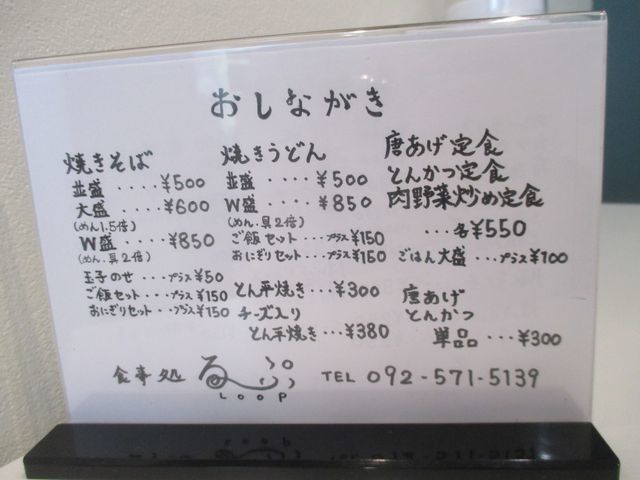 おしながき
焼きそば
並盛 ････ ¥500
大盛 ････ ¥600
(めん1.5倍)
W盛 ････ ¥850
(めん、具2倍)
玉子のせ ･･･ プラス ¥50
ご飯セット ･･･ プラス ¥150
おにぎりセット ･･･ プラス ¥150
焼きうどん
並盛 ････ ¥500
W盛 ････ ¥850
(めん、具2倍)
ご飯セット ･･･ プラス ¥150
おにぎりセット ･･･ プラス ¥150
とん平焼き ･･･ ¥300
チーズ入り
とん平焼き ･･･ ¥380
唐あげ定食
とんかつ定食
肉野菜炒め定食
･･･ 各¥550
ごはん大盛 ･･･ プラス ¥100
唐あげ
とんかつ
単品 ･･･ ¥300
食事処 るーぷ
LOOP
TEL 092-571-5139